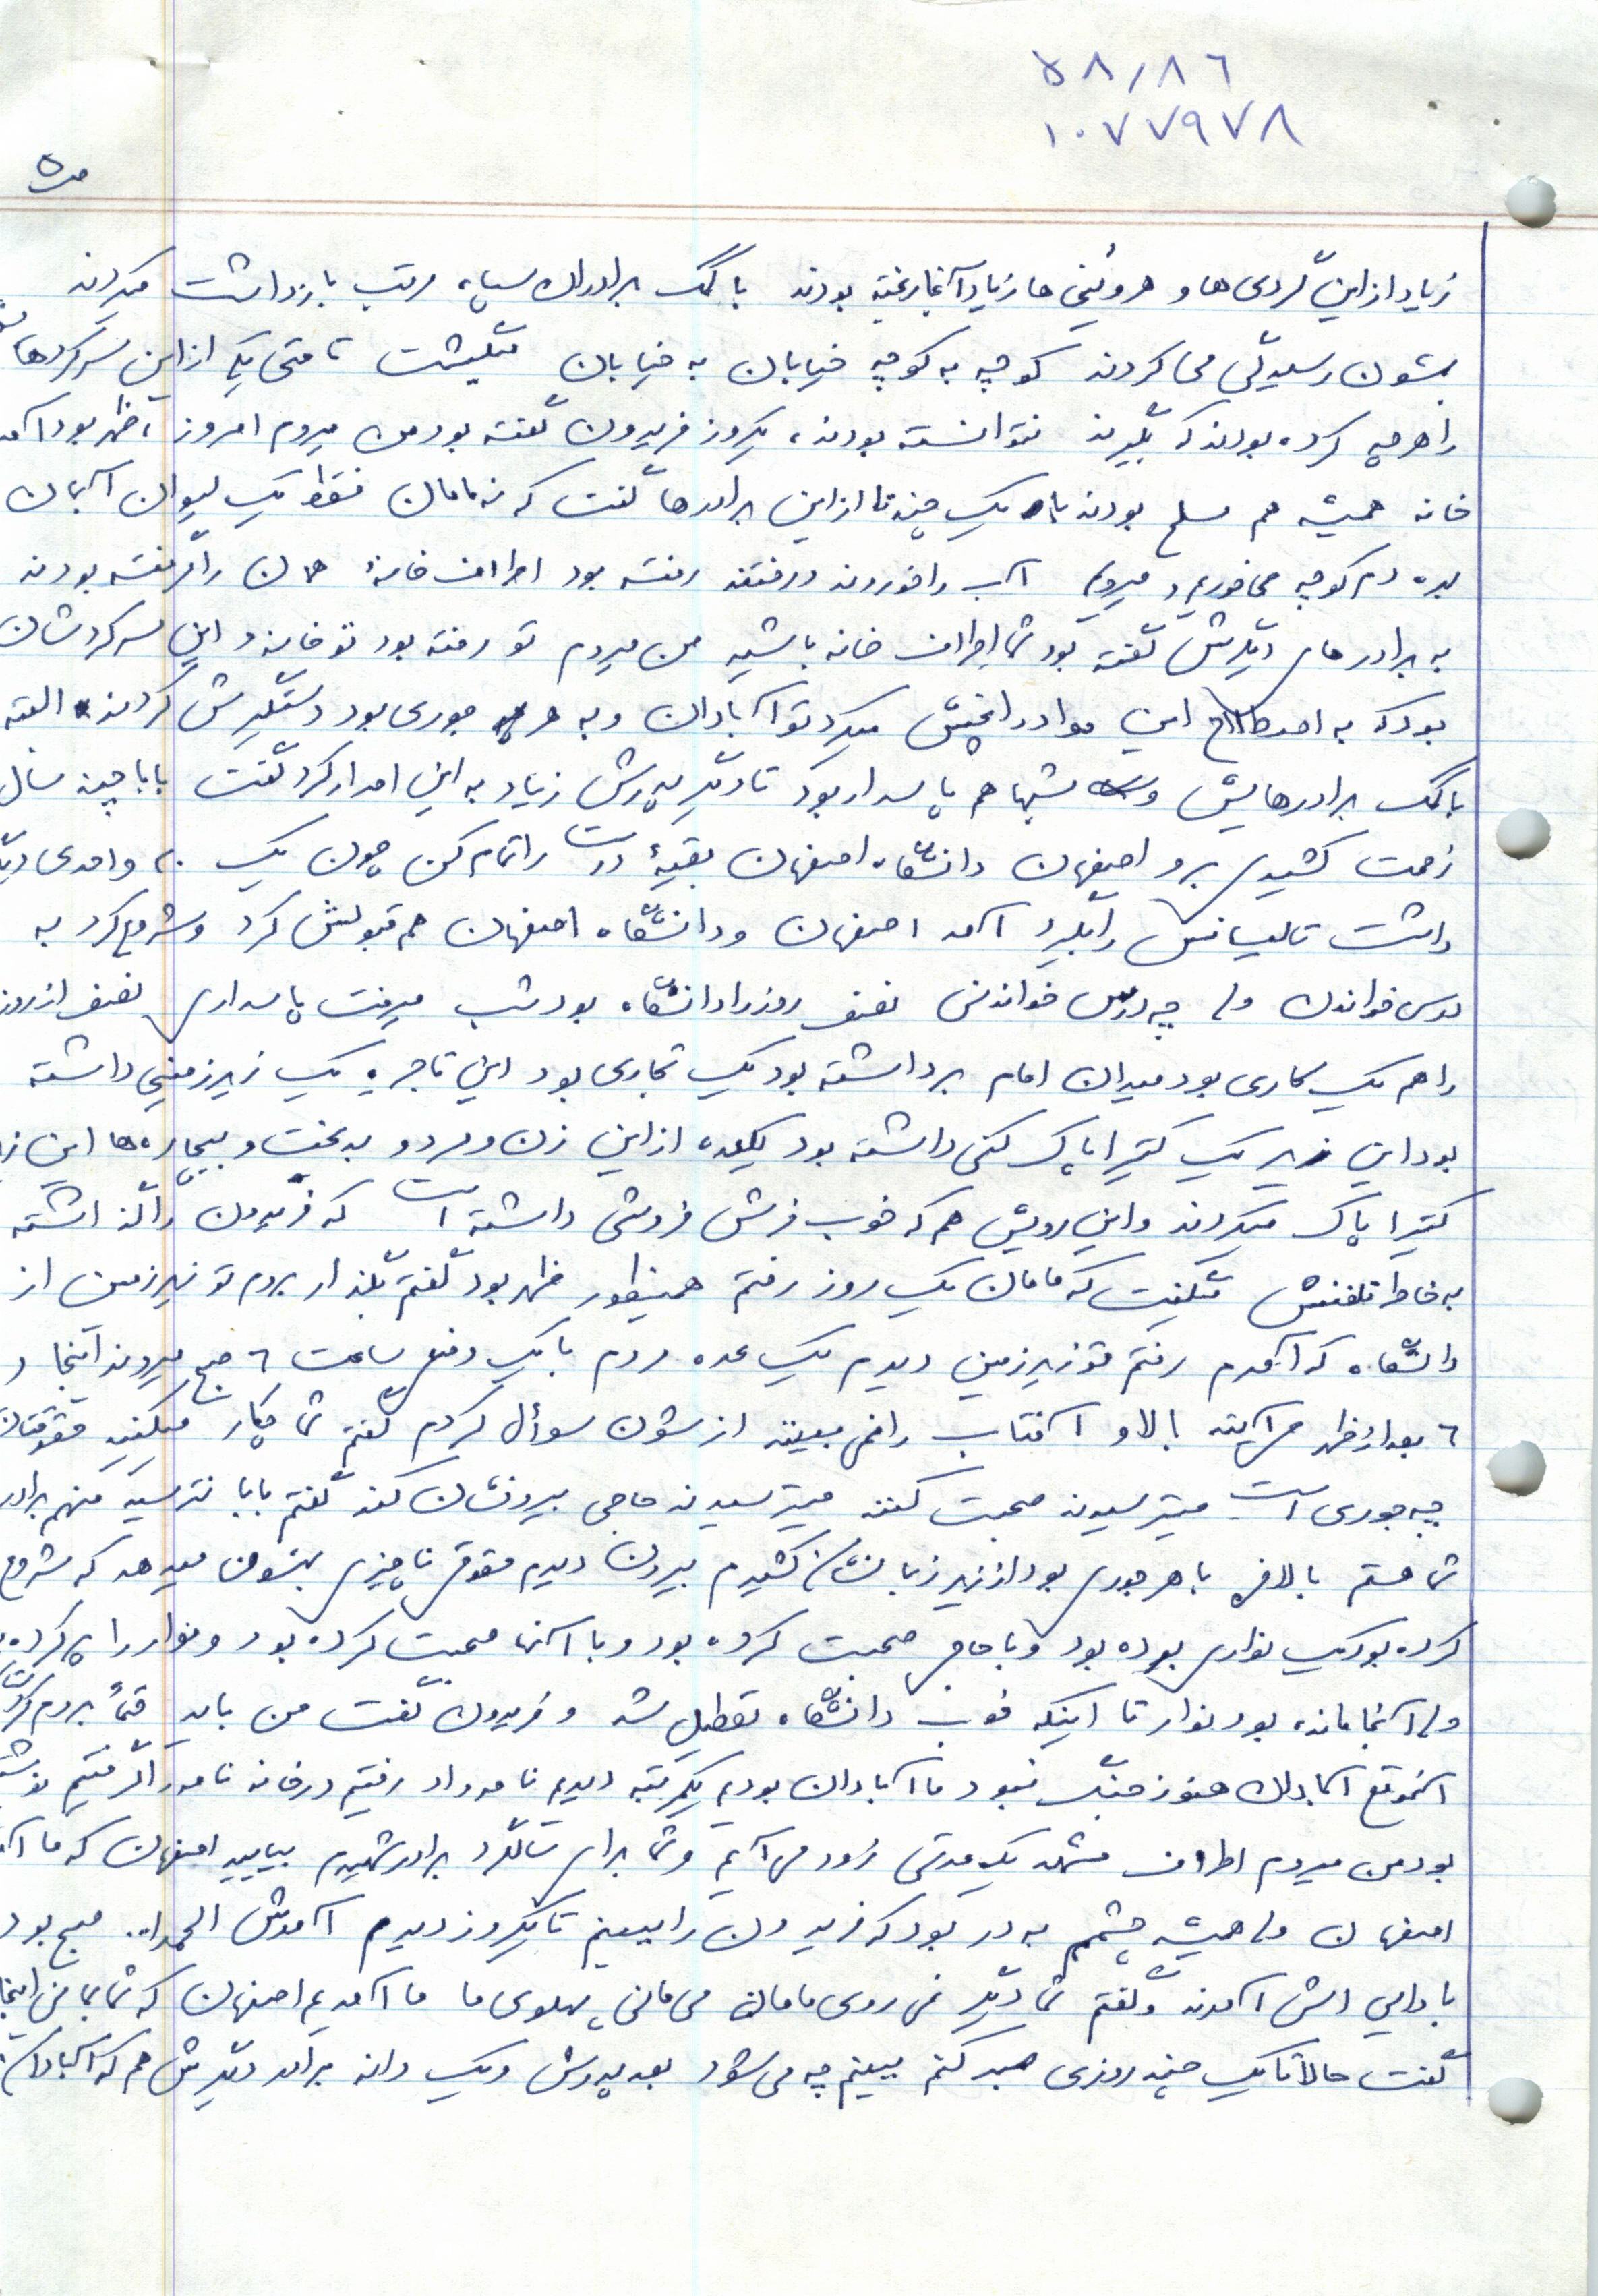 ۵۸/۸۶
۱۰۷۷۹۷۸
ص۵
زیاد از این گردی ها و هروئینی ها زیاد آنجا ریخته بودند با کمک برادران سپاه مرتب بازداشت میکردند
بهشون رسیدگی می کردند کوچه به کوچه خیابان به خیابان میگشت تا حتی یکی از این سرکرده ها
را هر چه کرده بودند که بگیرند نتوانسته بودند، یکروز فریدون گفته بود من میروم امروز، ظهر بود آمد
خانه همیشه هم مسلح بودند با یک چند تا از این برادرها گفت که نه مامان فقط یک لیوان آبمان
بده دم کوچه می خوریم و میرویم آب را خوردند و رفتند رفته بود اطراف خانۀ همان را گرفته بودند
به برادرهای دیگرش گفته بود شما اطراف خانه باشید من میروم تو رفته بود تو خانه و این سرکردشان
بود که به اصطلاح این مواد را پخش میکرد تو آبادان و به هر جوری بود دستگیرش کردند البته
با کمک برادرهایش و شبها هم پاسدار بود تا دیگر پدرش زیاد به این اصرار کرد گفت بابا چند سال
زحمت کشیدی برو اصفهان دانشگاه اصفهان بقیۀ درست را تمام کن چون یک ۲۰ واحدی دیگر
داشت تا لیسانس را بگیرد آمد اصفهان و دانشگاه اصفهان هم قبولش کرد و شروع کرد به
درس خواندن ولی چه درس خواندنی نصف روز را دانشگاه بود شب میرفت پاسداری نصف از روز
را هم یک کاری بود میدان امام برداشته بود یک تجاری بود این تاجره یک زیرزمینی داشته
بود این زیر یک کتیرا پاک کنی داشته بود یکعده از این زن و مرد و بدبخت و بیچاره ها این زیر
کتیرا پاک میکردند و این رویش هم که خوب فرش فروشی داشته است که فریدون را گذاشته
به خاطر تلفنش میگفت که مامان یک روز رفتم همینطور ظهر بود گفتم بگذار بروم تو زیرزمین از
دانشگاه که آمدم رفتم تو زیرزمین دیدم یک عده مردم با یک وضع ساعت ۶ صبح میروند اینجا و
۶ بعدازظهر می آیند بالا و آفتاب را نمی بینند ازشون سوأل کردم گفتم شما چکار میکنید حقوقتان
چه جوری است میترسیدند صحبت کنند میترسیدند حاجی بیرونشان کند گفتم بابا نترسید منهم برادر
شما هستم بالاخره با هر جوری بود از زیر زبانشان کشیدم بیرون دیدم حقوق ناچیزی بهشون میدهد که شروع
کرده بود یک نواری بوده بود و با حاجی صحبت کرده بود و با آنها صحبت کرده بود و نوار را پر کرده
ولی آنجا مانده بود نوار تا اینکه خوب دانشگاه تعطیل شد و فریدون گفت من باید حتماً بروم
آنموقع آبادان هنوز جنگ نبود ما آبادان بودیم یکمرتبه دیدیم نامه داد رفتیم درخانه نامه را گرفتیم نوشته
بود من میروم اطراف مشهد یک مدتی زود می آیم و شما برای سالگرد برادر شهیدم بیایید اصفهان که ما آمدیم
اصفهان ولی همیشه چشمم به در بود که فریدون را ببینم تا یکروز دیدم آمدش الحمدا... صبح بود
با دایی اش آمدند و گفتم شما دیگر نمی روی مامان می مانی پهلوی ما ما آمدیم اصفهان که شما بمانی اینجا
گفت حالا تا یک چند روزی صبر کنم ببینم چه می شود بعد پدرش و یک دانه برادر دیگرش هم که آبادان